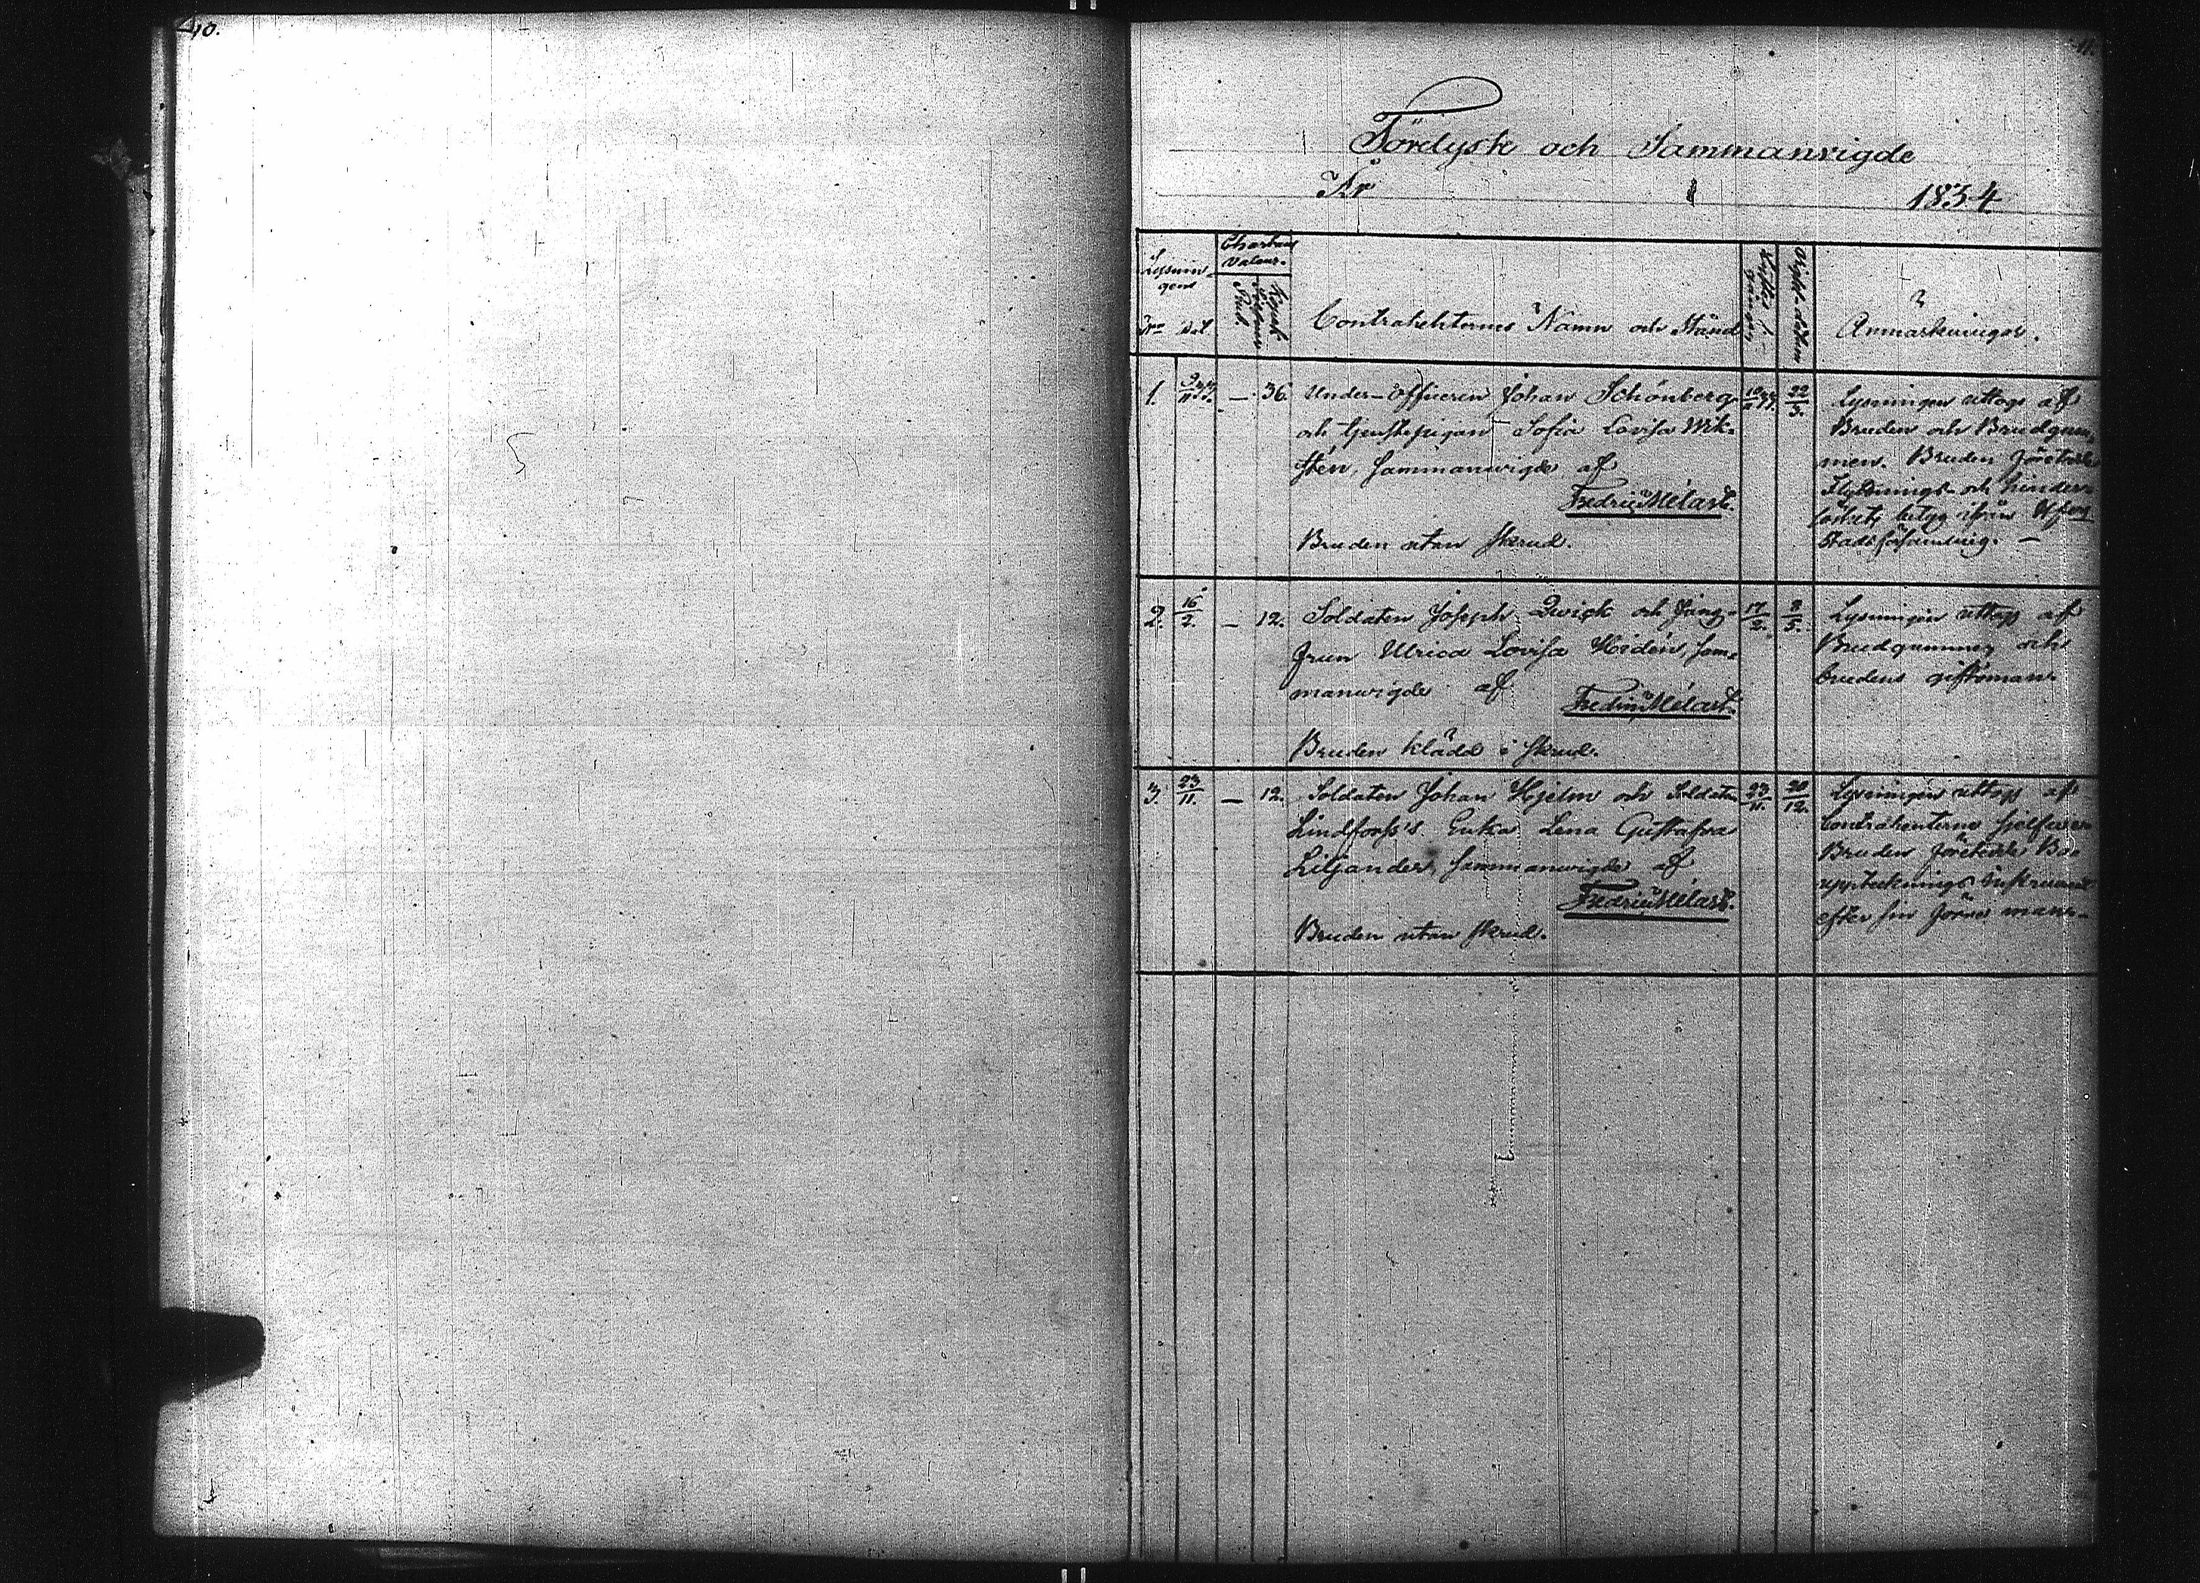 40.
41.
Förelyste och Sammanvigde
År 1834
Lysnin-
gens
Charta
Valeur.
Nro Dat
Contrahenternes Namn och Stånd
Vigsel-datum
Anmärkningar.
1. 9/11 33. — 36. Under-officeren Johan Schönberg 10/11 33. 22/3.
och tjenstepigan Sofia Lovisa Wik-
stén, sammanvigde af
Fredric Mélart.
Bruden utan skrud.
Lysningen uttogs af
Bruden och Brudgum-
men. Bruden företedde
Flyttnings- och hinder-
löshets betyg ifrån
Stadsförsamling. —
2. 16/2. — 12. Soldaten Joseph Qwick och Jung- 17/2. 8/5.
frun Ulrica Lovisa Hoidén, sam-
manvigde af
Fredric Mélart.
Bruden klädd i skrud.
Lysningen uttogs af
Brudgummen och
brudens giftoman
3. 23/11. — 12. Soldaten Johan Hjelm och Soldaten 23/11. 20/12.
Lindforss's Enka Lena Gustafva
Liljander, sammanvigde af
Fredric Mélart.
Bruden utan skrud.
Lysningen uttogs af
Contrahenterne sjelfve
Bruden företedde Bo-
uppteknings Instrument
efter sin förra man.